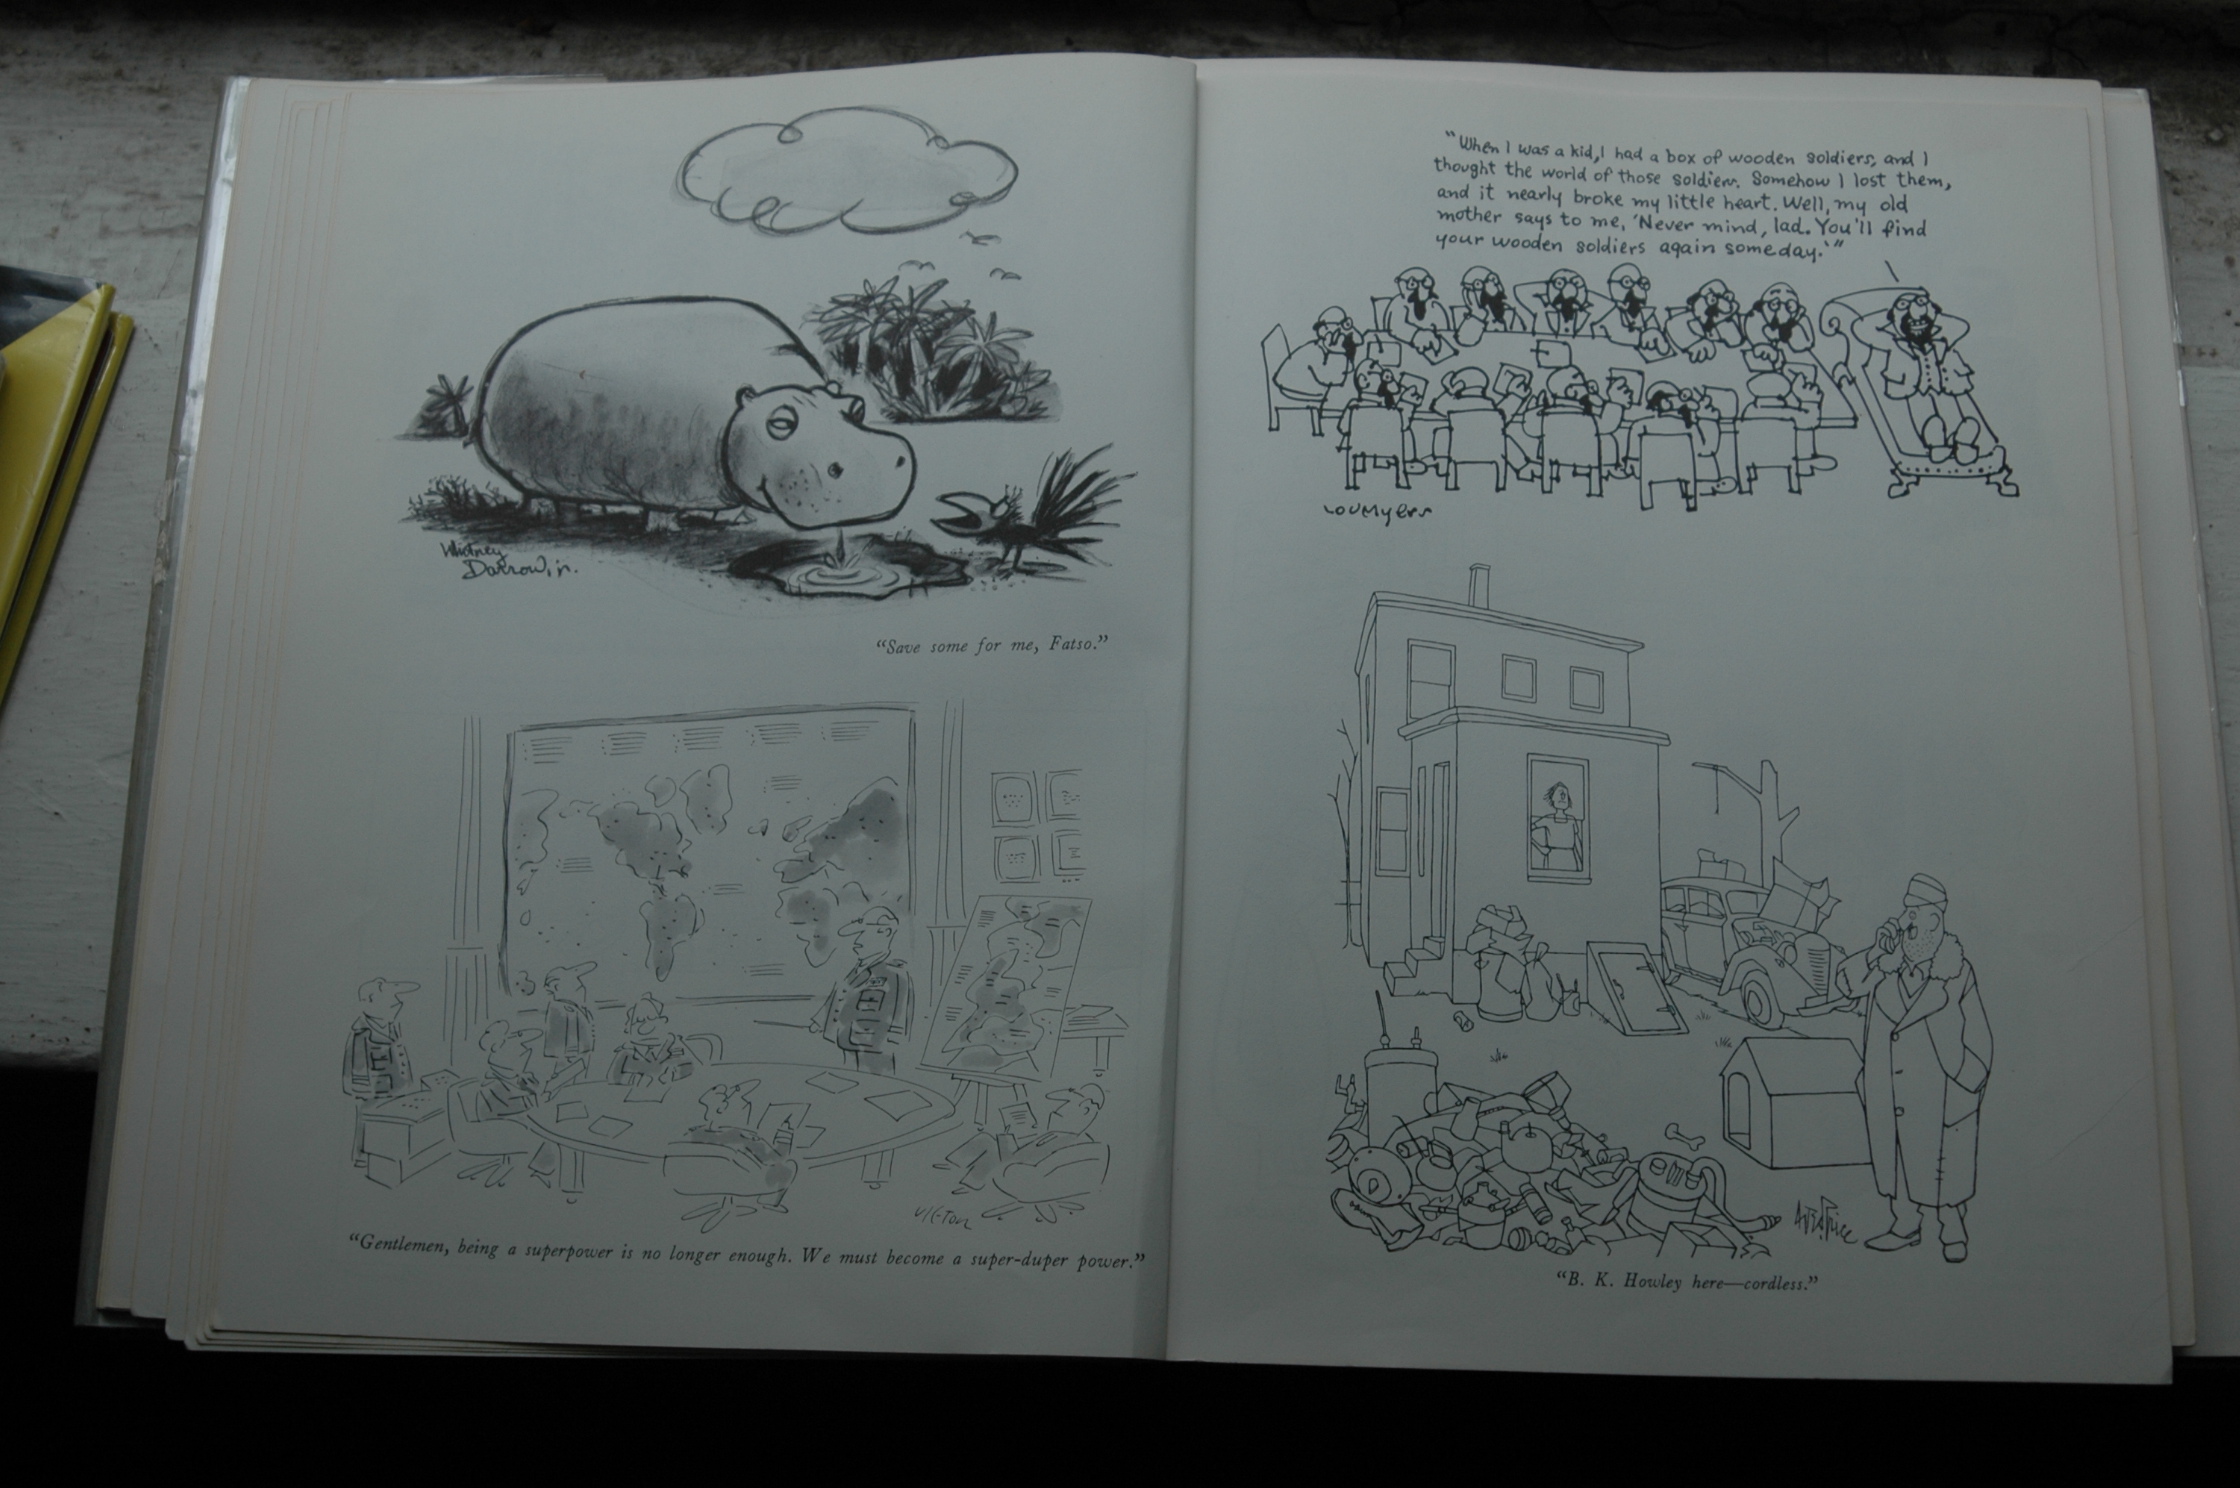 Whitney
Darrow, jr.
"Save some for me, Fatso."
"Gentlemen, being a superpower is no longer enough. We must become a super-duper power."
"When I was a kid, I had a box of wooden soldiers, and I
thought the world of those soldiers. Somehow I lost them,
and it nearly broke my little heart. Well, my old
mother says to me, 'Never mind, lad. You'll find
your wooden soldiers again someday.'"
LOU Myers
"B. K. Howley here—cordless."